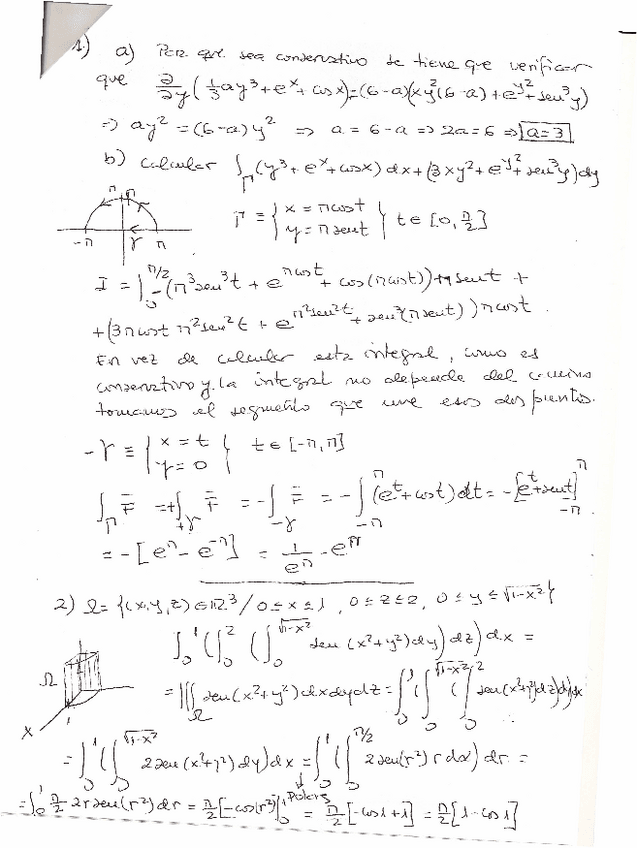 1.) a) Para que sea conservativo se tiene que verificar
que ∂/∂y (1/3 ay³ + eˣ + cos x) = (6-a)(xy²(6-a) + e^{y²} + sen³y)
=> ay² = (6-a)y² => a = 6-a => 2a=6 => a=3
b) Calcular ∫_Γ (y³ + eˣ + cosx) dx + (3xy² + e^{y²} + sen³y) dy
π Γ
-π γ π
Γ ≡ { x = π cost y = π sent } t ∈ [0, π/2]
I = ∫₀^{π/2} -(π³sen³t + e^{π cost} + cos(π cost)) π sent +
+(3π cost π²sen²t + e^{π²sen²t} + sen³(π sent)) π cost.
En vez de calcular esta integral, como es
conservativo y la integral no depende del camino
tomamos el segmento que une esos dos puntos.
-γ ≡ { x = t y = 0 } t ∈ [-π, π]
∫_Γ F̄ = +∫_{+γ} F̄ = -∫_{-γ} F̄ = -∫_{-π}^{π} (eᵗ + cost) dt = -[eᵗ + sent]_{-π}^{π}
= -[e^π - e^{-π}] = 1/e^π - e^π
2) Ω = {(x,y,z) ∈ ℝ³ / 0 ≤ x ≤ 1, 0 ≤ z ≤ 2, 0 ≤ y ≤ √(1-x²)}
∫₀¹ (∫₀² (∫₀^{√(1-x²)} sen (x²+y²) dy) dz) dx =
Ω
= ∭_Ω sen(x²+y²) dxdydz = ∫₀¹ (∫₀^{√(1-x²)} (∫₀² sen(x²+y²) dz) dy) dx
X
= ∫₀¹ (∫₀^{√(1-x²)} 2 sen (x²+y²) dy) dx = ∫₀¹ (∫₀^{π/2} 2 sen(r²) r dα) dr =
Polares
= ∫₀¹ π/2 2r sen(r²) dr = π/2 [-cos(r²)]₀¹ = π/2 [-cos1 + 1] = π/2 [1 - cos1]